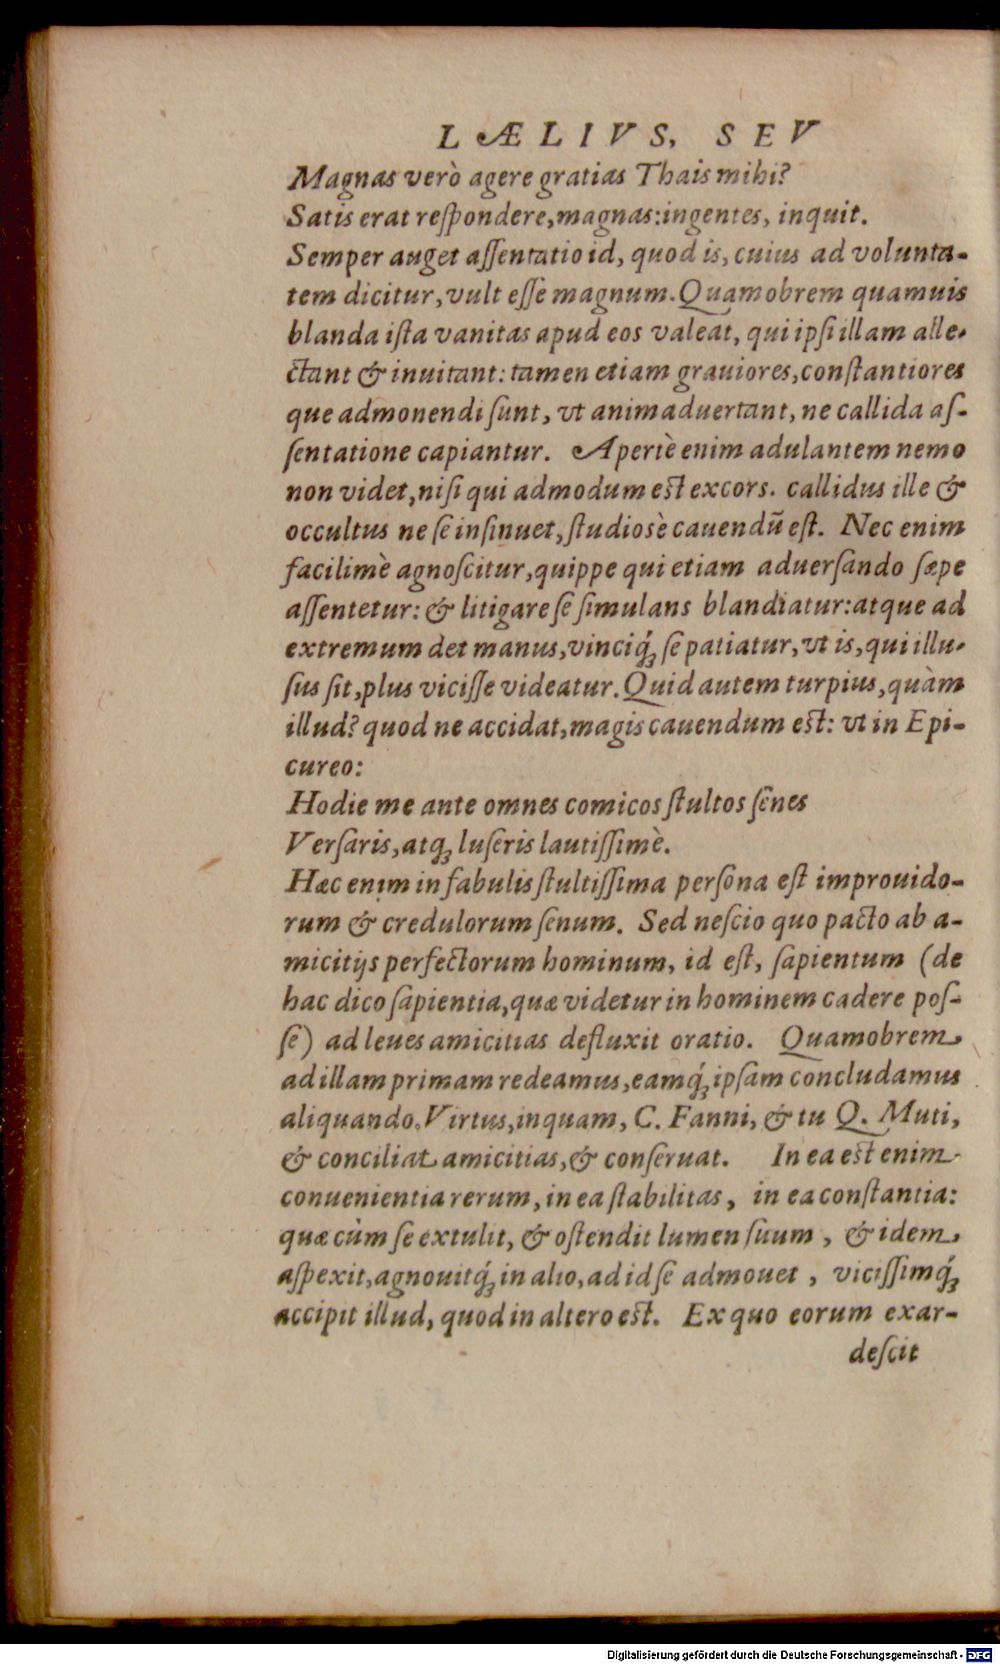 LÆLIVS, SEV
Magnas verò agere gratias Thais mihi?
Satis erat reſpondere, magnas: ingentes, inquit.
Semper auget aſſentatio id, quod is, cuius ad volunta-
tem dicitur, vult eſſe magnum. Quamobrem quamuis
blanda iſta vanitas apud eos valeat, qui ipſi illam alle-
ctant & inuitant: tamen etiam grauiores, conſtantiores
que admonendi ſunt, vt animaduertant, ne callida aſ-
ſentatione capiantur. Apertè enim adulantem nemo
non videt, niſi qui admodum eſt excors. callidus ille &
occultus ne ſe inſinuet, ſtudiosè cauendū eſt. Nec enim
facilimè agnoſcitur, quippe qui etiam aduerſando ſæpe
aſſentetur: & litigare ſe ſimulans blandiatur: atque ad
extremum det manus, vinciq́ꝫ ſe patiatur, vt is, qui illu-
ſus ſit, plus viciſſe videatur. Quid autem turpius, quàm
illud? quod ne accidat, magis cauendum eſt: vt in Epi-
cureo:
Hodie me ante omnes comicos ſtultos ſenes
Verſaris, atqꝫ luſeris lautiſſimè.
Hæc enim in fabulis ſtultiſſima perſona eſt improuido-
rum & credulorum ſenum. Sed neſcio quo pacto ab a-
micitijs perfectorum hominum, id eſt, ſapientum (de
hac dico ſapientia, quæ videtur in hominem cadere poſ-
ſe) ad leues amicitias defluxit oratio. Quamobrem
ad illam primam redeamus, eamq́ꝫ ipſam concludamus
aliquando. Virtus, inquam, C. Fanni, & tu Q. Muti,
& conciliat amicitias, & conſeruat. In ea eſt enim
conuenientia rerum, in ea ſtabilitas, in ea conſtantia:
quæ cùm ſe extulit, & oſtendit lumen ſuum, & idem
aſpexit, agnouitq́ꝫ in alio, ad id ſe admouet, viciſſimq́ꝫ
accipit illud, quod in altero eſt. Ex quo eorum exar-
deſcit
Digitalisierung gefördert durch die Deutsche Forschungsgemeinschaft - DFG